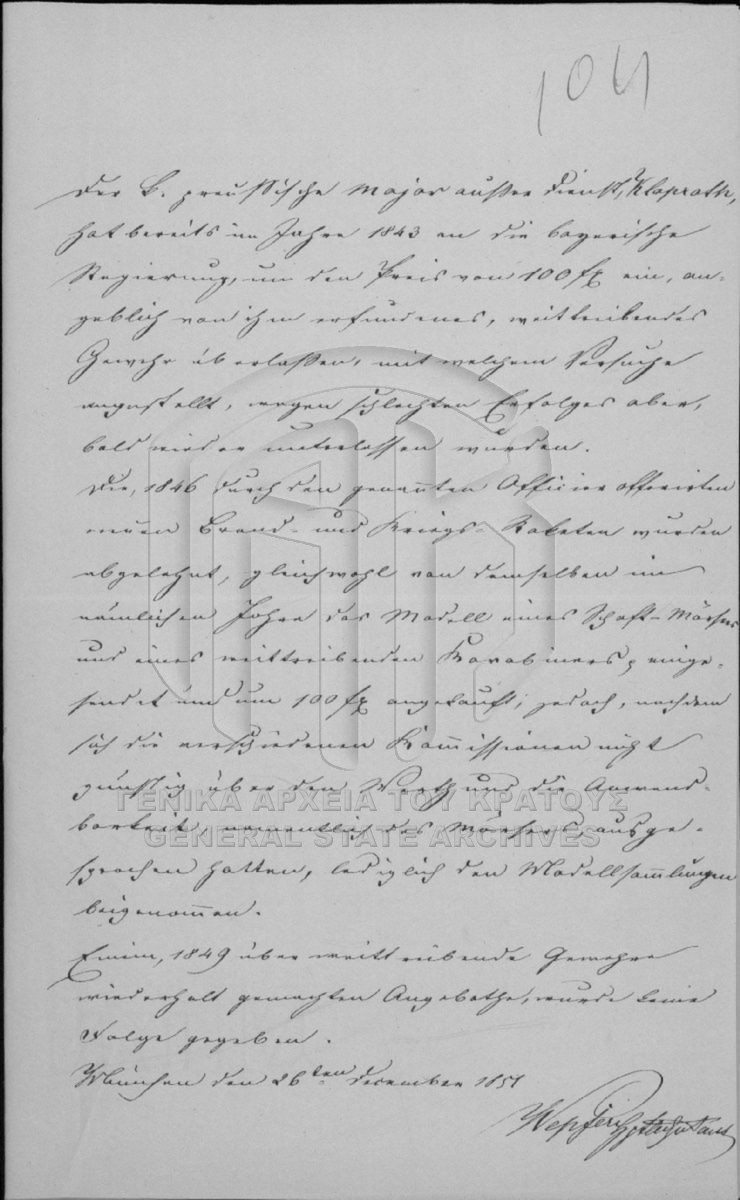 104
Der k. preußische Major außer Dienst, Klaproth,
hat bereits im Jahre 1843 an die bayerische
Regierung, um den Preis von 100 fx ein, an-
geblich von ihm erfundenes, weittreibendes
Gewehr überlassen, mit welchem Versuche
angestellt, wegen schlechten Erfolges aber,
bald wieder unterlassen wurden.
Die, 1846 durch den genannten Officier offerirten
neuen Brand- und Kriegs-Raketen wurden
abgelehnt, gleichwohl von demselben im
nämlichen Jahre das Modell eines Schaft-Mörsers
und eines weittreibenden Karabiners, einge-
sendet und um 100 fx angekauft; jedoch, nachdem
sich die verschiedenen Kommissionen nicht
günstig über den Werth und die Anwend-
barkeit, namentlich des Mörsers, ausge-
sprochen hatten, lediglich den Modellsammlungen
beigenommen.
Einem, 1849 über weittreibende Gewehre
wiederholt gemachten Angebothe, wurde keine
Folge gegeben.
München den 26ten December 1851
ΓΕΝΙΚΑ ΑΡΧΕΙΑ ΤΟΥ ΚΡΑΤΟΥΣ
GENERAL STATE ARCHIVES